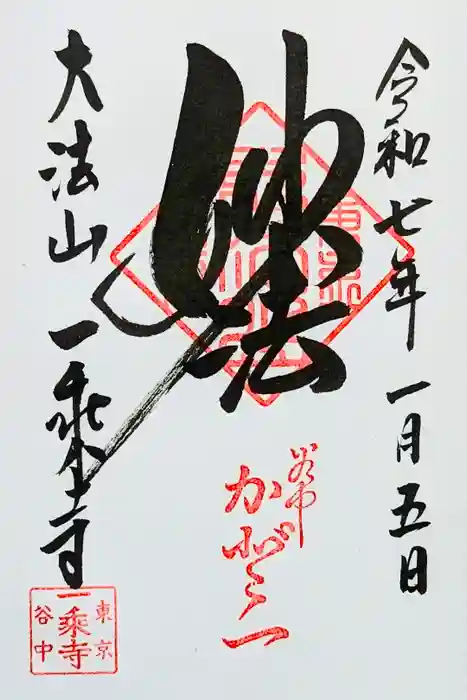 令和七年一月五日
妙法
谷中
大法山一乘寺
東京
一乗寺
谷中